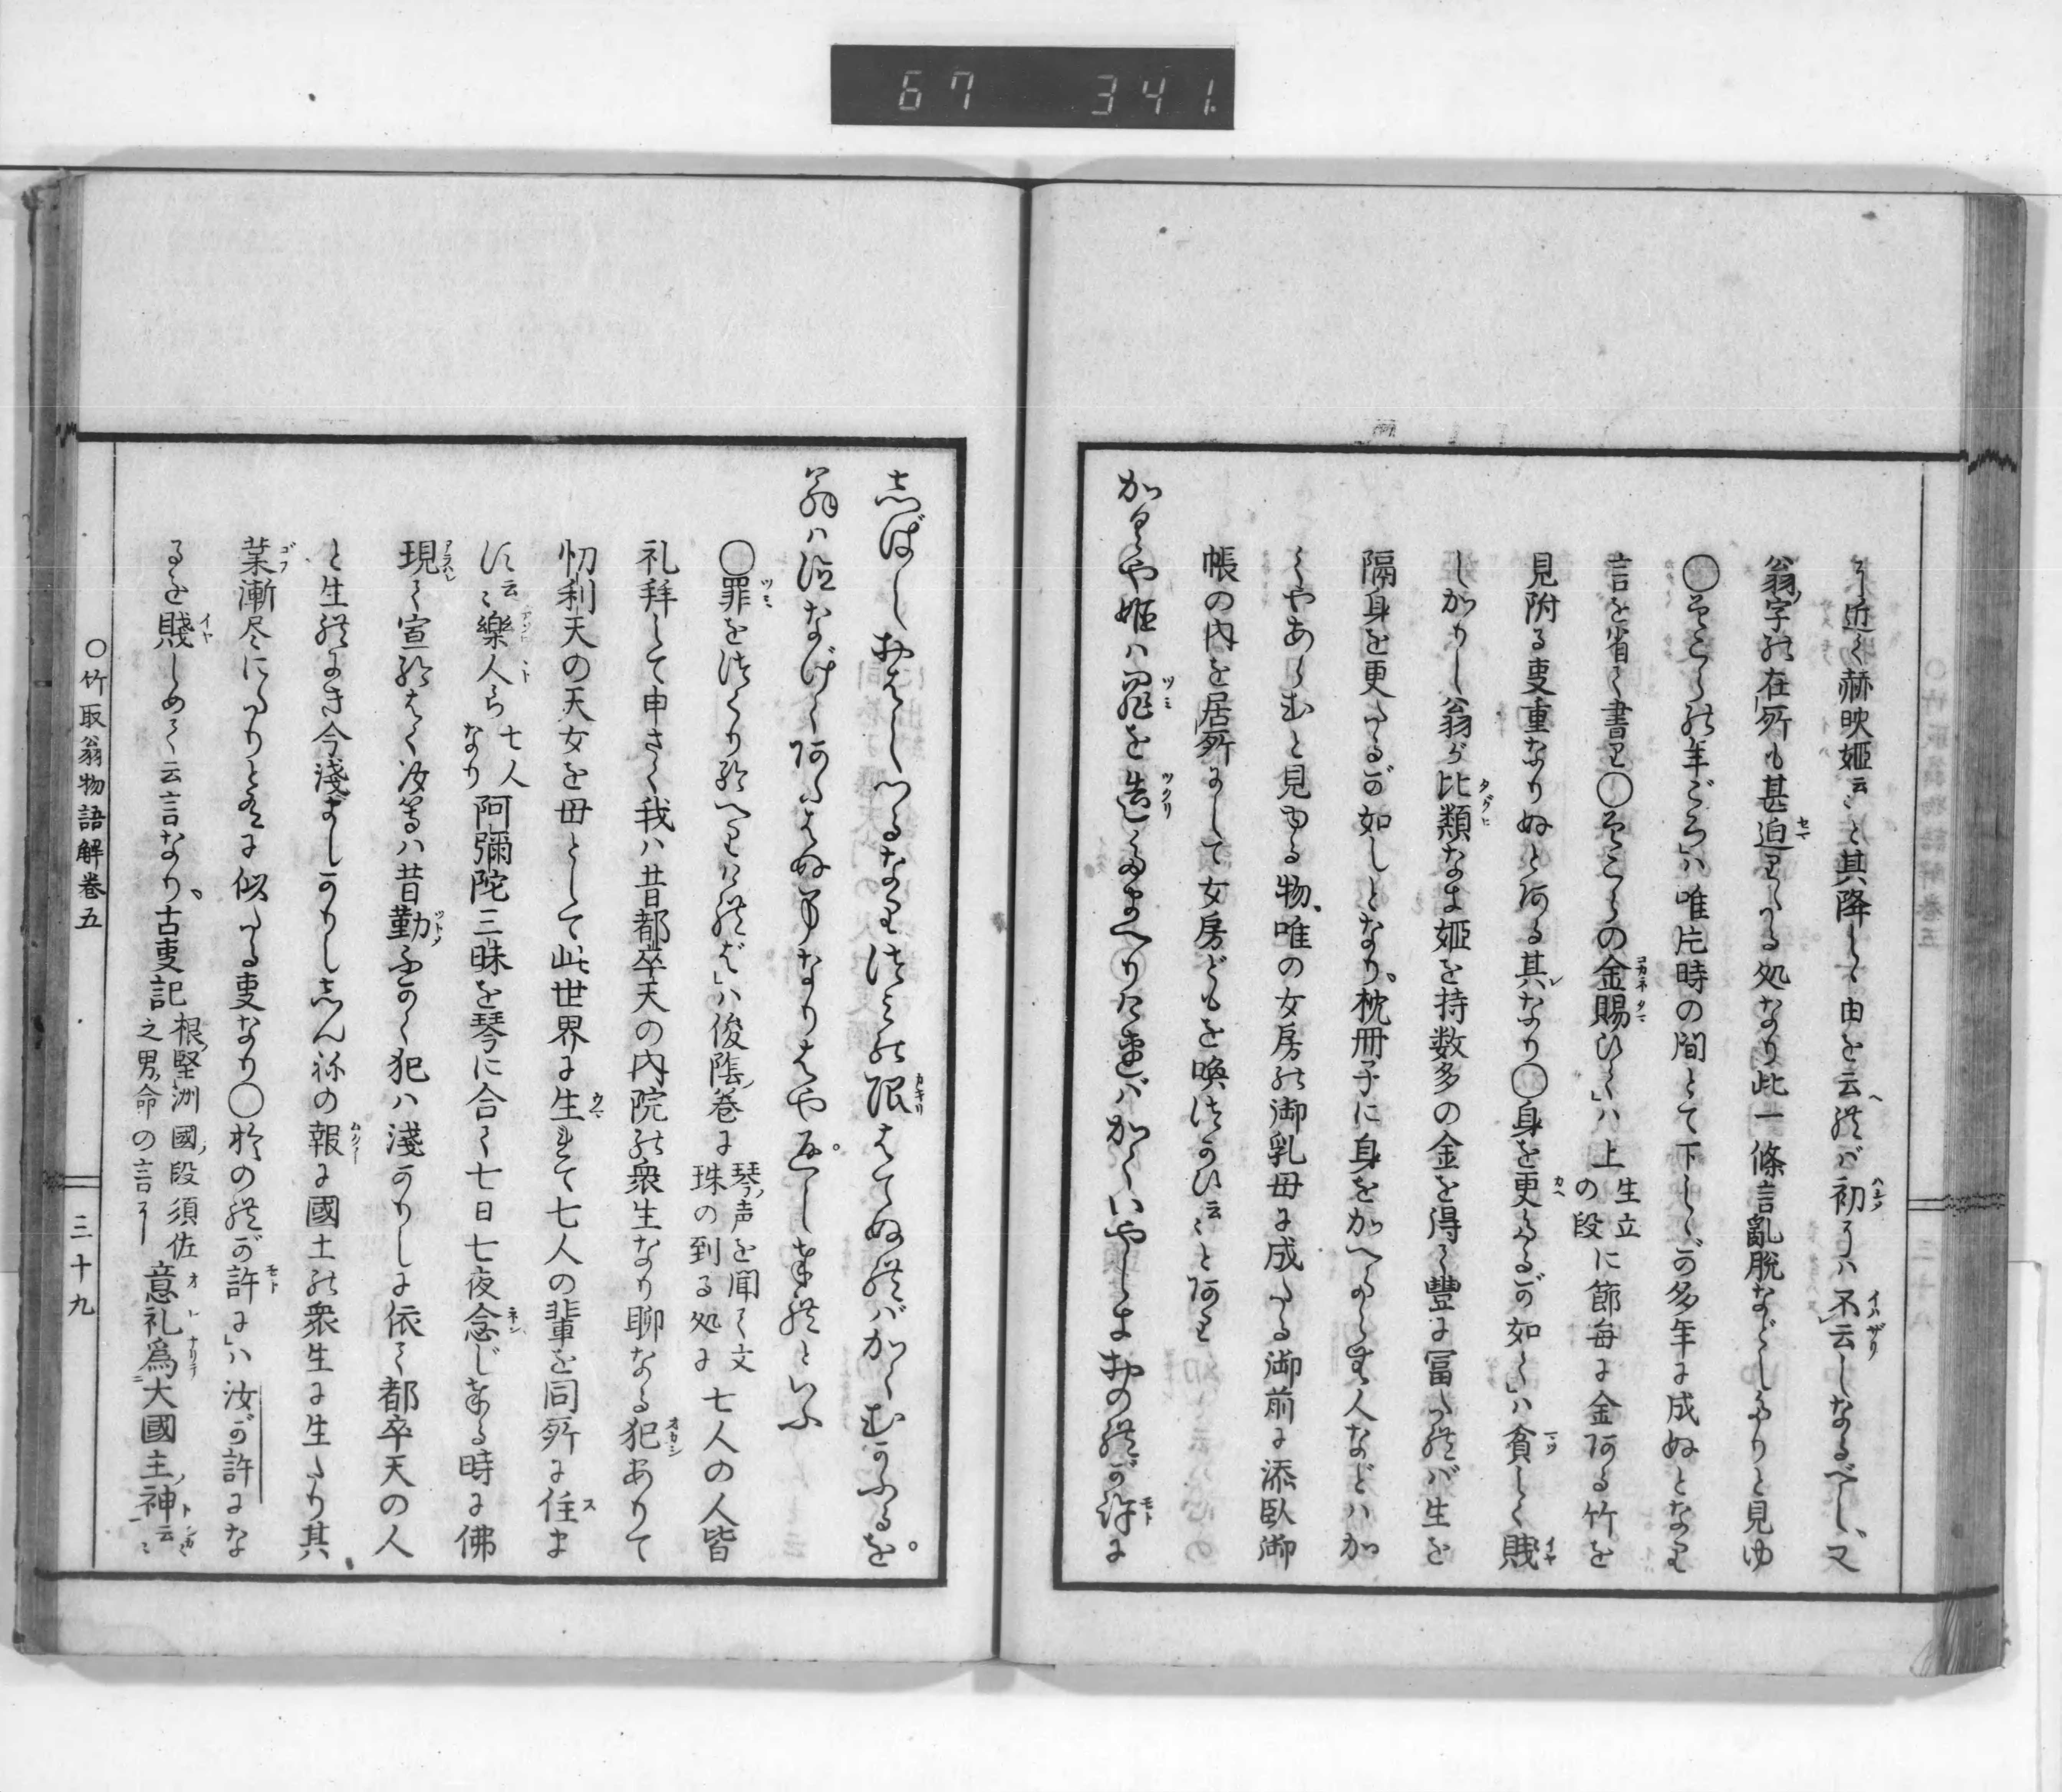 67 341.
に近く赫映姫云〻と其降しゝ由を云れバ初にハ不云しなるべし、又
翁字の在所も甚迫りたる処なり此一條言亂脱などしたりと見ゆ
○そこらの年ごろ」ハ唯片時の間とて下しゝが多年に成ぬとなり
言を省て書り○そこらの金賜ひて」ハ上生立の段に節毎に金ある竹を
見附る叓重なりぬとある其なり○身を更たるが如く」ハ貧しく賤
しかりし翁が比類なき姫を持数多の金を得て豊に冨たれバ生を
隔身を更たるが如しとなり、枕冊子に身をかへたらむ人などハか
くやあらむと見ゆる物、唯の女房の御乳母に成たる御前に添臥御
帳の内を居所にして女房どもを喚つかひ云〻とあり
かぐや姫ハ罪を造り給へりければかくいやしきおのれが許に
志ばしおはしつるなり罪の限はてぬれバかくむかふるを。
翁ハ泣なげくあたはぬ事なりはや返し奉れといふ
○罪をつくり給へりければ」ハ俊蔭巻に琴声を聞て文珠の到る処に七人の人皆
礼拜して申さく我ハ昔都卒天の内院の衆生なり聊なる犯ありて
忉利天の天女を母として此世界に生れて七人の輩を同所に住ま
ず云〻樂人ら七人なり阿彌陀三昧を琴に合て七日七夜念じ奉る時に佛
現て宣給はく汝等ハ昔勤ふかく犯ハ淺かりしに依て都卒天の人
と生れにき今淺ましかりし志ん袮の報に國土の衆生に生たり其
業漸尽にたりとあるに似たる叓なり○於のれが許に」ハ汝が許にな
るを賤しめて云言なり。古叓記根堅洲國段須佐之男命の言に意礼爲大國主神云〻
○竹取翁物語解巻五
三十九